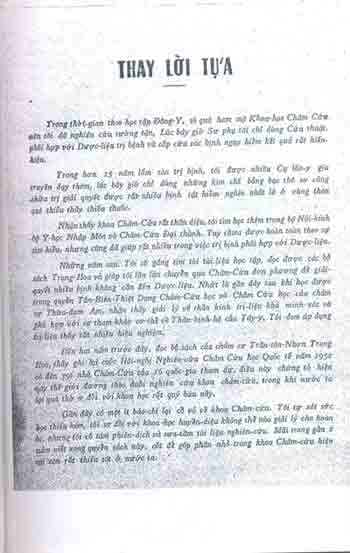 THAY LỜI TỰA
Trong thời-gian theo học tập Đông-Y, tôi quá ham mộ Khoa-học Châm Cứu
nên tôi đã nghiên cứu tường tận. Lúc bấy giờ Sư phụ tôi chỉ dùng Cứu thuật,
phối hợp với Dược-liệu trị bệnh và cấp cứu các bịnh nguy hiểm kết quả rất hiển-
hiện.
Trong hơn 25 năm lăn lóc trị bịnh, tôi được nhiều Cụ lão-y gia
truyền dạy thêm, lúc bấy giờ chỉ dùng những kim chế bằng bạc thô sơ cũng
chữa trị giải quyết được rất nhiều bịnh tật hiểm nghèo nhất là ở vùng thôn
quê thiếu thầy thiếu thuốc.
Nhận thấy khoa Châm-Cứu rất thần diệu, tôi tìm học thêm trong bộ Nội-kinh
bộ Y-học Nhập Môn và Châm-Cứu Đại thành. Tuy chưa được hoàn toàn theo sự
tìm hiểu, nhưng cũng đã giúp rất nhiều trong việc trị bịnh phối hợp với Dược-liệu.
Những năm sau, Tôi cố gắng tìm tòi tài-liệu học tập, đọc được các bộ
sách Trung-Hoa và giúp tôi lần lần chuyên qua Châm-Cứu đơn phương để giải-
quyết nhiều bịnh không cần đến Dược-liệu. Nhất là gần đây sau khi học được
trong quyển Tân-Biên-Thiệt Dụng Châm-Cứu học và Châm-Cứu học của châm
sư Thừa-đạm Am, nhận thấy giải lý về thần kinh trị-liệu khá minh-xác và
phù hợp với sự tham khảo cơ-thể và Thần-kinh-hệ của Tây-y. Tôi đem áp dụng
trị-liệu thấy rất nhiều hiệu nghiệm.
Đến hai năm trước đây, đọc bộ sách của châm sư Trần-tôn-Nhơn Trung
Hoa, thấy ghi lại cuộc Hội-nghị Nghiên-cứu Châm Cứu Học Quốc tế năm 1952
có đến 396 nhà Châm-Cứu của 16 quốc-gia tham dự, điều này chứng tỏ hiện
nay thế giới đương theo đuổi nghiên cứu khoa châm-cứu, trong khi nước ta
lại quá thờ ơ đối với khoa học rất quý báu này.
Gần đây có một ít báo-chí lại cổ võ về khoa Châm-cứu. Tôi tự xét sức
học thiếu kém, tối sơ đối với khoa-học huyền-diệu không thể nào giải lý cho hoàn
bị, nhưng tôi có tâm phiên-dịch và sưu-tầm tài liệu nghiên-cứu. Mãi trong gần 2
năm viết xong quyển sách này, cốt để góp phần nhỏ trong khoa Châm-cứu hiện
nay còn rất thiếu sót ở nước ta.